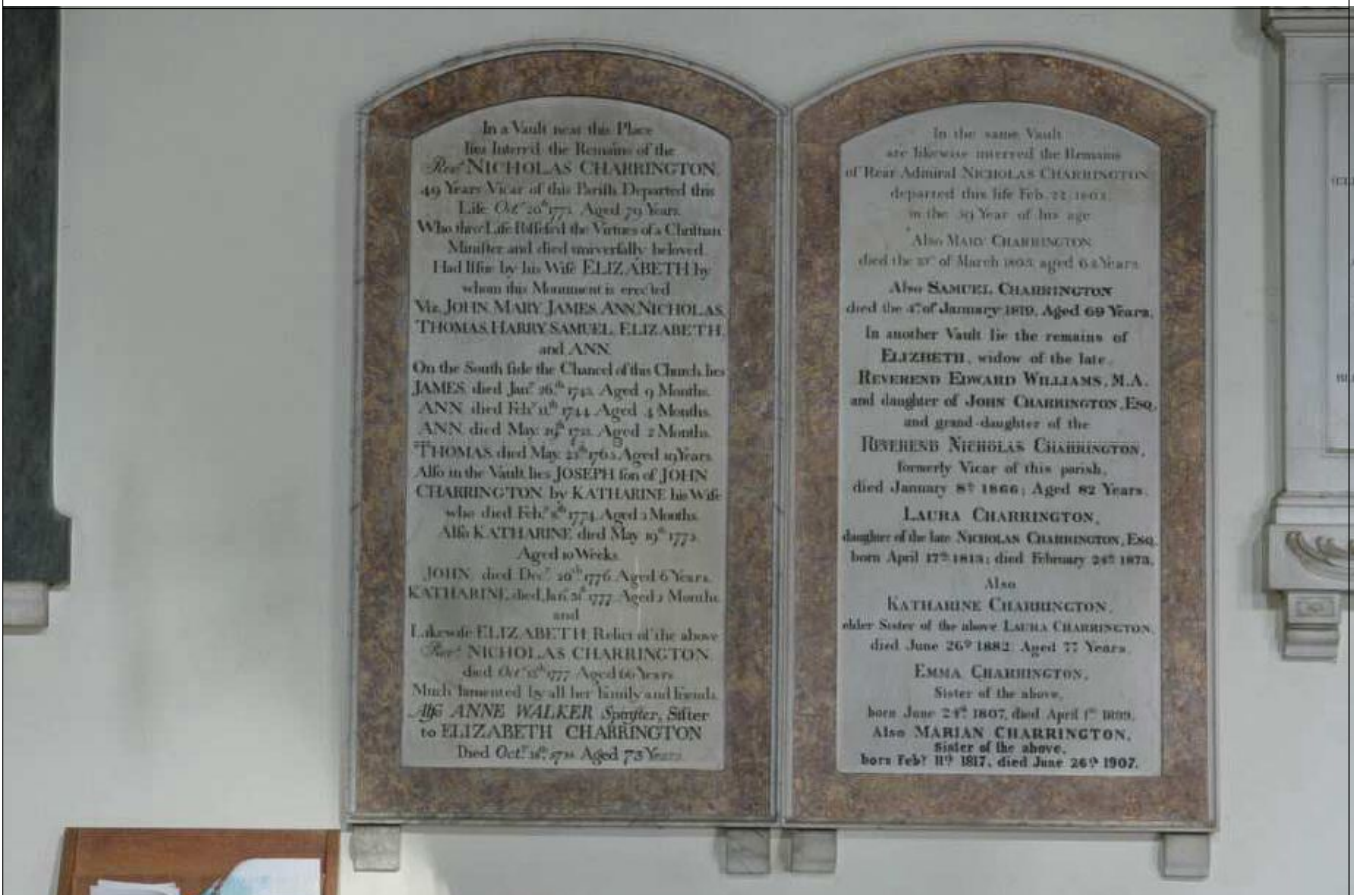 In a Vault near this Place
lies Interr'd the Remains of the
Revd. NICHOLAS CHARRINGTON,
49 Years Vicar of this Parish Departed this
Life Octr. 20th 1772. Aged 79 Years.
Who thro' Life Poſseſsed the Virtues of a Chriſtian
Miniſter and died univerſally beloved.
Had Iſsue by his Wife ELIZABETH by
whom this Monument is erected
Viz. JOHN, MARY, JAMES, ANN, NICHOLAS,
THOMAS, HARRY, SAMUEL, ELIZABETH,
and ANN.
On the South ſide the Chancel of this Church lies
JAMES, died Janr. 26th Aged 9 Months.
ANN died Febr. 11th 1744. Aged 4 Months.
ANN died May Aged 2 Months.
THOMAS, died May Aged 19 Years.
Alſo in the Vault lies JOSEPH ſon of JOHN
CHARRINGTON by KATHARINE his Wife
who died Febr. 8th 1774. Aged Months.
Alſo KATHARINE died May 19th
Aged 10 Weeks.
JOHN, died Decr. 1776. Aged 6 Years.
KATHARINE, died 1777. Aged 2 Months.
and
Likewiſe ELIZABETH Relict of the above
Revd. NICHOLAS CHARRINGTON
died Octr. 1777. Aged 66 Years
Much lamented by all her Family and friends.
Alſo ANNE WALKER Spinſter, Siſter
to ELIZABETH CHARRINGTON
Died Octr. Aged 73 Years
In the same Vault
are likewise interred the Remains
of Rear Admiral NICHOLAS CHARRINGTON
departed this life Feb. 22 1803,
in the Year of his age
Also MARY CHARRINGTON
died the of March aged Years.
Also SAMUEL CHARRINGTON
died the 4th of January 1819, Aged 69 Years.
In another Vault lie the remains of
ELIZBETH, widow of the late
REVEREND EDWARD WILLIAMS, M.A.
and daughter of JOHN CHARRINGTON, ESQ.
and grand-daughter of the
REVEREND NICHOLAS CHARRINGTON,
formerly Vicar of this parish,
died January 8th 1866; Aged 82 Years.
LAURA CHARRINGTON,
daughter of the late NICHOLAS CHARRINGTON, ESQ.
born April 17th 1813; died February 24th 1873.
Also
KATHARINE CHARRINGTON,
elder Sister of the above LAURA CHARRINGTON,
died June 26th 1882; Aged 77 Years.
EMMA CHARRINGTON,
Sister of the above,
born June 24th 1807, died April 1st 1899.
Also MARIAN CHARRINGTON,
Sister of the above,
born Feby. 11th 1817, died June 26th 1907.